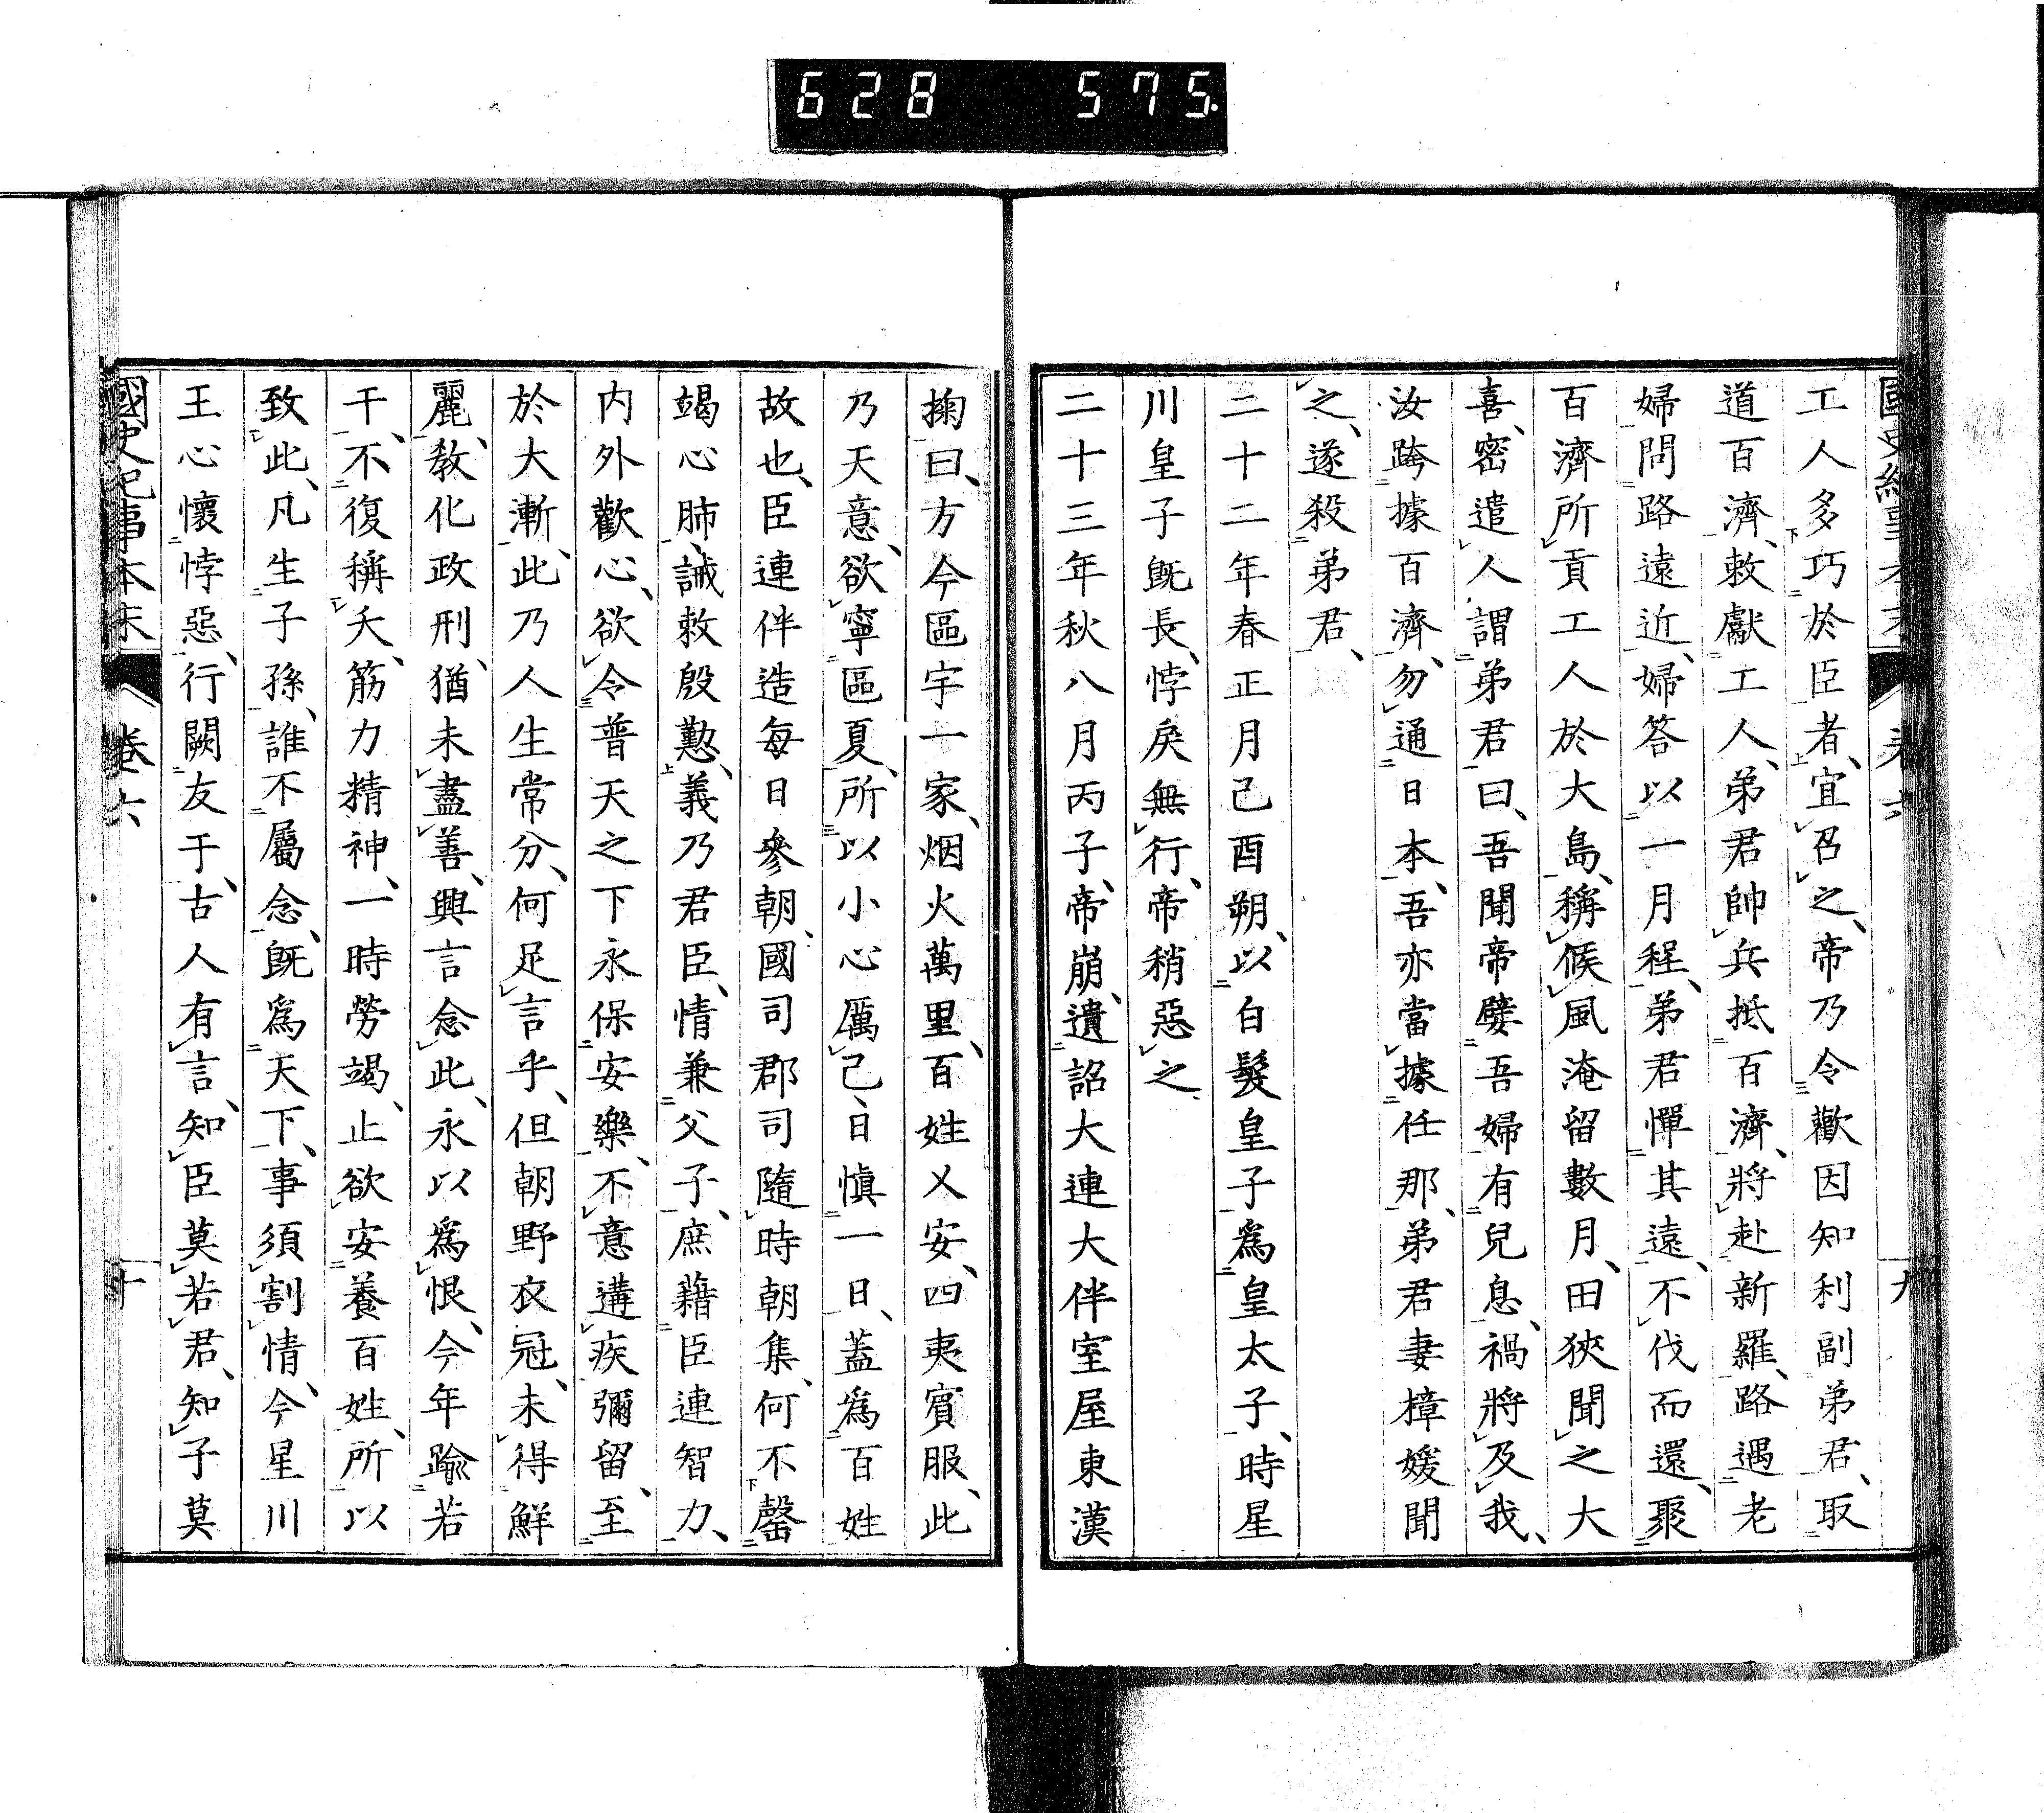 628 575.
工人多巧於臣者、宜召之、帝乃令歡因知利副弟君、取
道百濟、敕獻工人、弟君帥兵抵百濟、將赴新羅、路遇老
婦問路遠近、婦答以一月程、弟君憚其遠、不伐而還、聚
百濟所貢工人於大島、稱候風淹留數月、田狹聞之大
喜、密遣人謂弟君曰、吾聞帝嬖吾婦有兒息、禍將及我、
汝跨據百濟、勿通日本、吾亦當據任那、弟君妻樟媛聞
之、遂殺弟君、
二十二年春正月己酉朔、以白髮皇子爲皇太子、時星
川皇子既長、悖戾無行、帝稍惡之
二十三年秋八月丙子、帝崩、遺詔大連大伴室屋東漢
掬曰、方今區宇一家、烟火萬里、百姓乂安、四夷賓服、此
乃天意、欲寧區夏、所以小心厲己、日愼一日、蓋爲百姓
故也、臣連伴造每日參朝、國司郡司隨時朝集、何不罄
竭心肺、誡敕殷懃、義乃君臣、情兼父子、庶藉臣連智力、
内外歡心、欲令普天之下永保安樂、不意遘疾彌留、至
於大漸、此乃人生常分、何足言乎、但朝野衣冠、未得鮮
麗、教化政刑、猶未盡善、興言念此、永以爲恨、今年踰若
干、不復稱夭、筋力精神、一時勞竭、止欲安養百姓、所以
致此、凡生子孫、誰不屬念、既爲天下、事須割情、今星川
王心懷悖惡、行闕友于、古人有言、知臣莫若君、知子莫
國史紀事本末 卷六 十